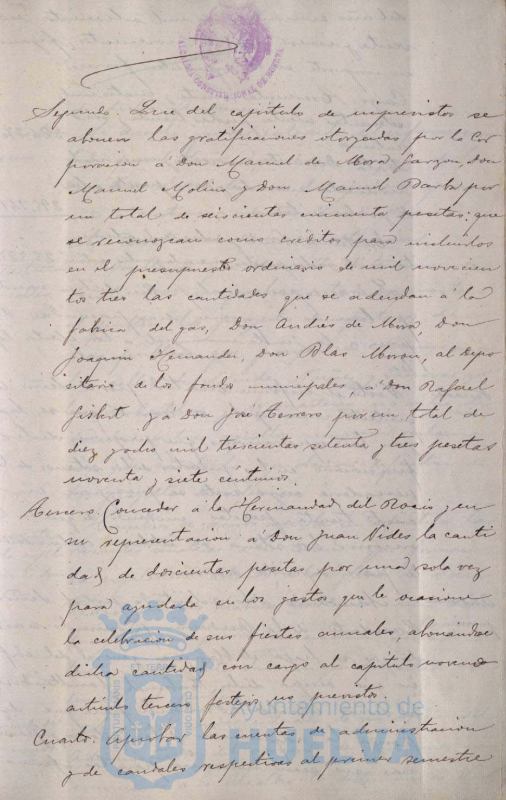 ALCALDIA CONSTITUCIONAL DE HUELVA
Segundo. Que del capitulo de imprevistos se
abonen las gratificaciones otorgadas por la Cor
poracion á Don Manuel de Mora Garzon, Don
Manuel Molino y Don Manuel Barba por
un total de seiscientas cincuenta pesetas; que
se reconozcan como créditos para incluirlos
en el presupuesto ordinario de mil novecien
tos tres las cantidades que se adeudan á la
fabrica del gas, Don Andrés de Mora, Don
Joaquin Hernandez, Don Blas Moron, al depo
sitario de los fondos municipales, á Don Rafael
y á Don José por un total de
diez y ocho mil trescientas setenta y tres pesetas
noventa y siete céntimos.
Tercero. Conceder á la Hermandad del Rocio y en
su representacion á Don Juan Vides la canti
dad de doscientas pesetas por una sola vez
para ayudarla en los gastos que le ocasione
la celebracion de sus fiestas anuales, abonándose
dicha cantidad con cargo al capitulo noveno
articulo tercero festejos no previstos.
Cuarto. Aprobar las cuentas de administracion
y de caudales respectivas al primer semestre
Ayuntamiento de
HUELVA